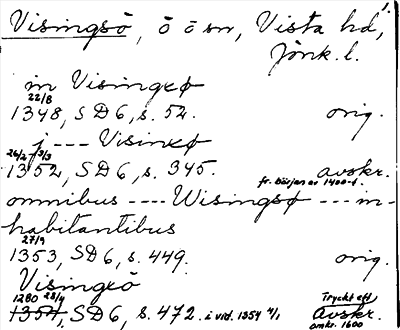 1.
Visingsö, ö ö sn, Vista hd,
Jönk. l.
in Visingxø
22/8
1348, SD 6, s. 52. orig.
j --- Visinxø
26/2 3/3
1352, SD 6, s. 345. avskr.
fr. början av 1400-t.
omnibus ---- Wisingsø --- in-
habitantibus
27/9
1353, SD 6, s. 449. orig.
Visingxö
1280 28/4 Tryckt eft.
1354, SD 6, s. 472. i vid. 1354 4/1 avskr.
omkr. 1600